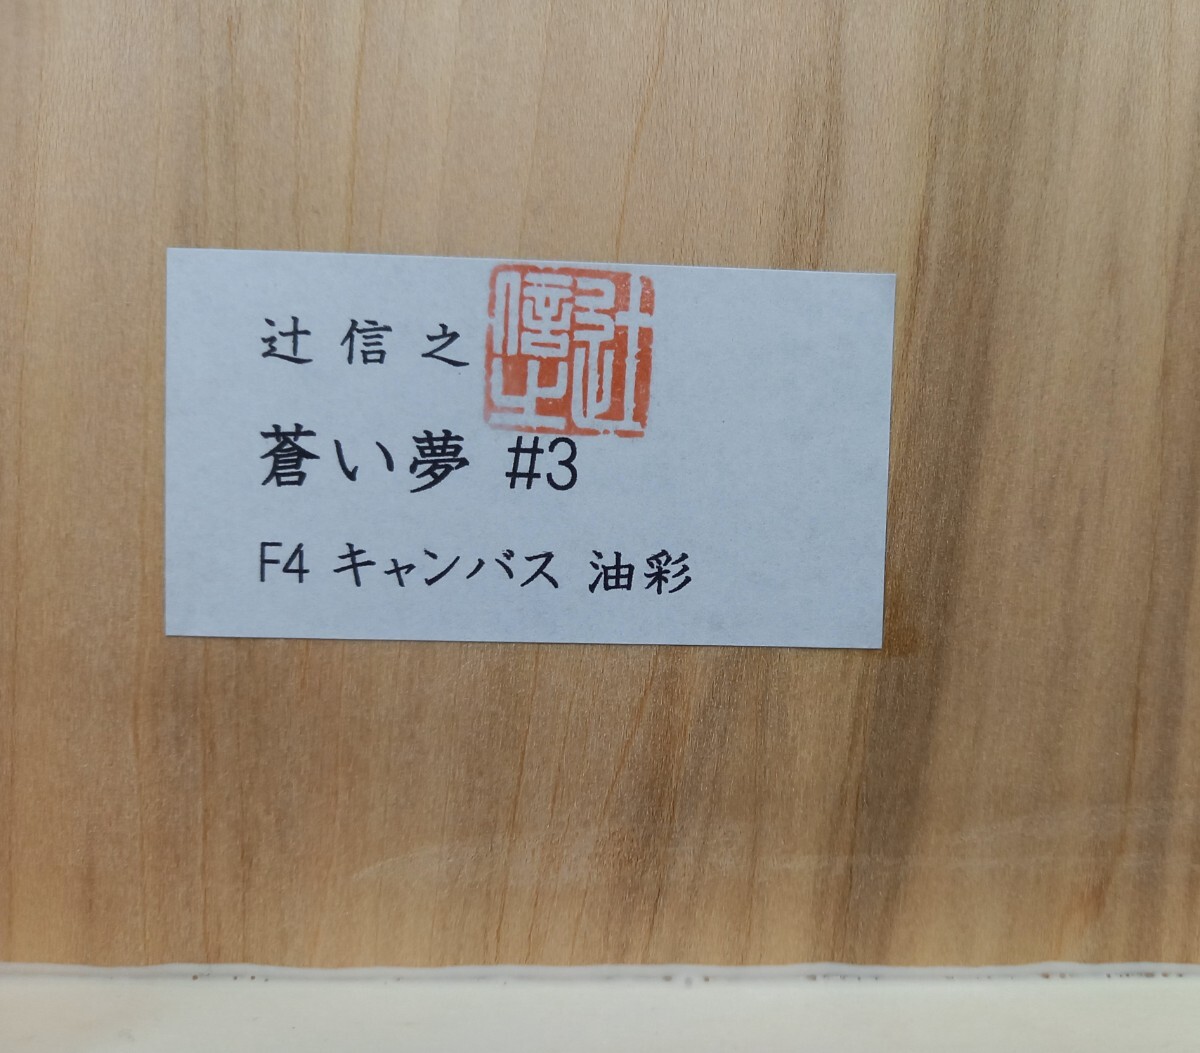 辻信之
辻信之
蒼い夢 #3
F4 キャンバス 油彩